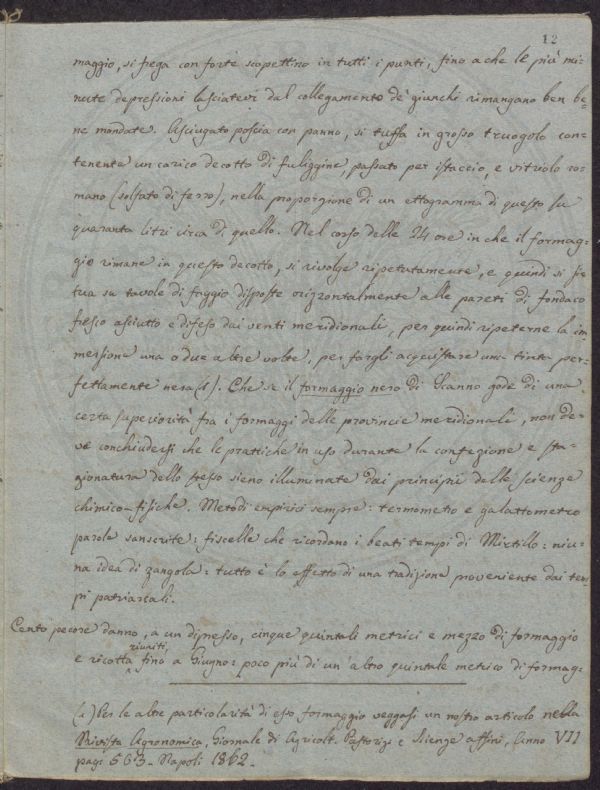 12
maggio, si frega con forte scopettino in tutti i punti, fino a che le più mi-
nute depressioni lasciatevi dal collegamento de' giunchi rimangano ben be-
ne mondate. Asciugato poscia con panno, si tuffa in grosso truogolo con-
tenente un carico decotto di fuliggine, passato per istaccio, e vitriolo ro-
mano (solfato di ferro), nella proporzione di un ettogramma di questo su
quaranta litri circa di quello. Nel corso delle 24 ore in che il formag-
gio rimane in questo decotto, si rivolge ripetutamente, e quindi si si-
tua su tavole di faggio disposte orizzontalmente alle pareti di fondaco
fresco asciutto e difeso dai venti meridionali, per quindi ripeterne la im-
mersione una o due altre volte, per fargli acquistare una tinta per-
fettamente nera (1). Che se il formaggio nero di Scanno gode di una
certa superiorità fra i formaggi delle provincie meridionali, non de-
ve conchiudersi che le pratiche in uso durante la confezione e sta-
gionatura dello stesso sieno illuminate dai principii delle scienze
chimico-fisiche. Metodi empirici sempre: termometro e galattometro
parole sanscrite: fiscelle che ricordano i beati tempi di Mirtillo: niu-
na idea di zangola: tutto è lo effetto di una tradizione proveniente dai tem-
pi patriarcali.
Cento pecore danno, a un dipresso, cinque quintali metrici e mezzo di formaggio
e ricotta riuniti fino a Giugno: poco più di un altro quintale metrico di formag-
(1) Per le altre particolarità di esso formaggio veggasi un nostro articolo nella
Rivista Agronomica, Giornale di Agricolt. Pastorizi e Scienze affini, Anno VII
pag. 563 - Napoli 1862 -